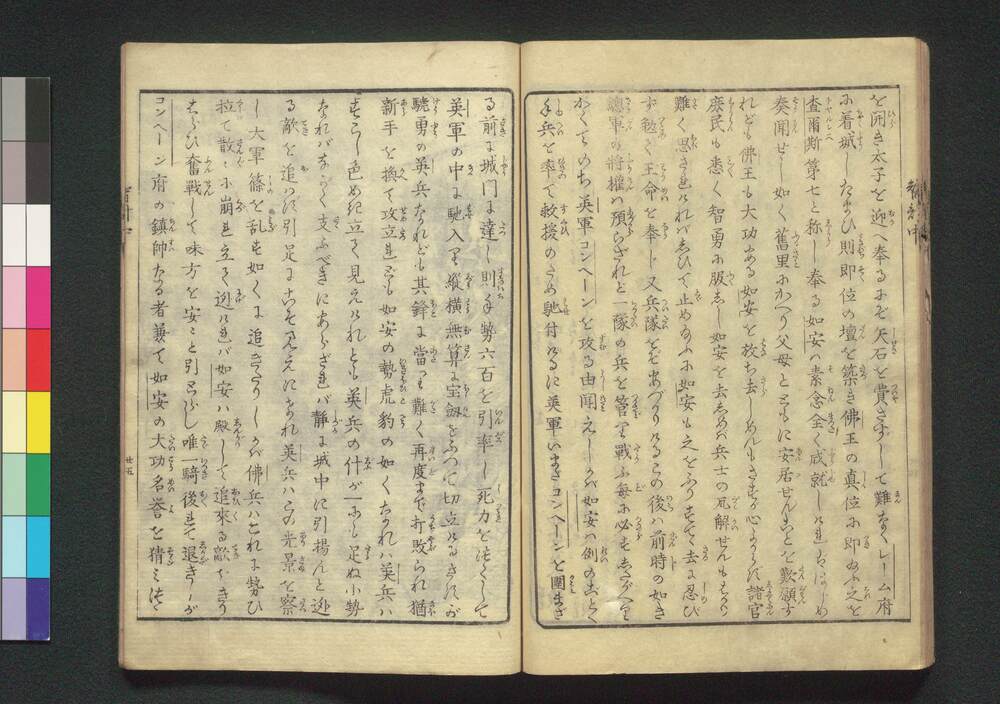 を開き太子を迎へ奉るにぞ矢石を費さずして難なくレーム府
に着城したまひ則即位の壇を築き佛王の真位に即ゐふ之を
査爾斯第七と称し奉る如安ハ素念全く成就しけれ
奏聞せし如く舊里にかへり父母とともに安居せんことを歎願す
れども佛王も大功ある如安を放ち去しめんもさすが心よからず諸官
庶民も悉く智勇に服し如安を去らしめバ兵士の瓦解せんも
難く思されければしひて止めゐふに如安も之をふりすてゝ去に忍び
ず勉て王命を奉じ又兵隊をぞあづかりけるこの後ハ前時の如き
總軍の将權ハ預らされど一隊の兵を管し戰ふ毎に必ず
かくてのち英軍コンヘーンを攻る由聞えしかバ如安ハ例のごとく
手兵を率て救援の為馳付けるに英軍いまだコンヘーンを圍まざ
る前に城門に達し則手勢六百を引率し死力を
英軍の中に馳入り縦横無算に宝劔をふつて切立けるさしもが
驍勇の英兵なれども其鋒に當り難く再度まで打敗られ猶
新手を換て攻立れども如安の勢虎豹の如くなれハ英兵ハ
すこし色めき立て見えけれども英兵の什が一にも足ぬ小勢
なれバながく支ふべきにあらざれバ静に城中に引揚んと
る敵を追はず引足にこそ見えにけれ英兵ハこの光景を察
し大軍篠を乱す如くに追きたりしかバ佛兵ハこれに勢ひ
拉て散々に崩れ立て逊けれバ如安ハ殿して追來る敵を
奮戰して味方を安々と引
唯一騎後れて退きしが
コンヘーン府の鎮帥たる者兼て如安の大功名誉を猜ミ
廿五